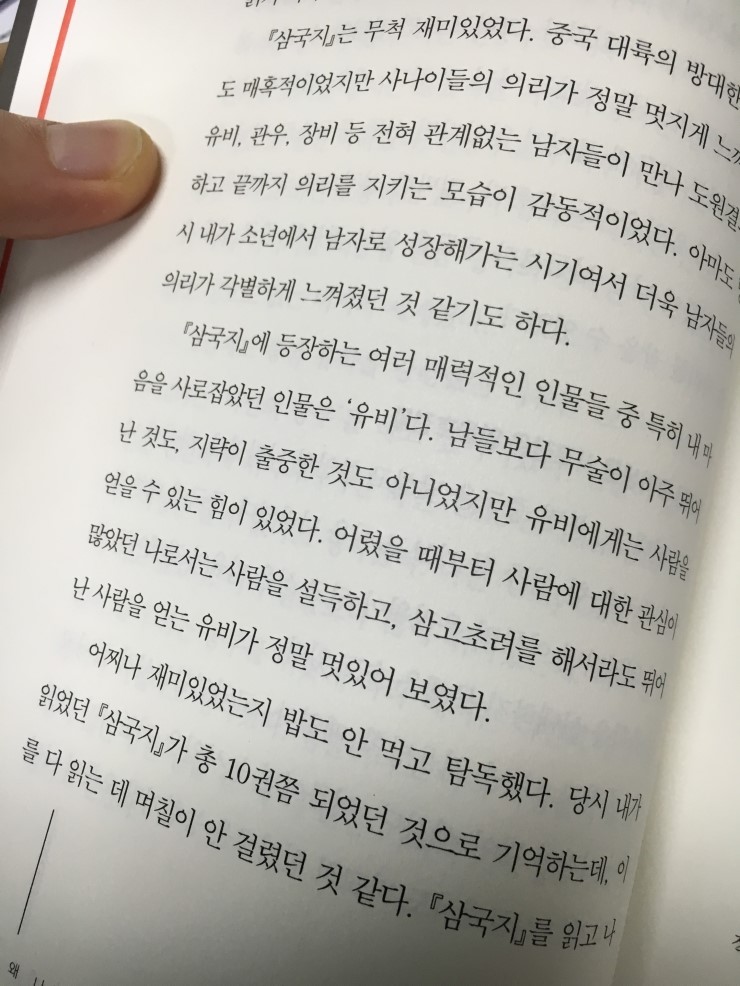 『삼국지』는 무척 재미있었다. 중국 대륙의 방대한
도 매혹적이었지만 사나이들의 의리가 정말 멋지게
유비, 관우, 장비 등 전혀 관계없는 남자들이 만나
하고 끝까지 의리를 지키는 모습이 감동적이었다. 아마도
시 내가 소년에서 남자로 성장해가는 시기여서 더욱 남자들의
의리가 각별하게 느껴졌던 것 같기도 하다.
『삼국지』에 등장하는 여러 매력적인 인물들 중 특히 내 마
음을 사로잡았던 인물은 ‘유비’다. 남들보다 무술이 아주 뛰어
난 것도, 지략이 출중한 것도 아니었지만 유비에게는 사람을
얻을 수 있는 힘이 있었다. 어렸을 때부터 사람에 대한 관심이
많았던 나로서는 사람을 설득하고, 삼고초려를 해서라도 뛰어
난 사람을 얻는 유비가 정말 멋있어 보였다.
어찌나 재미있었는지 밥도 안 먹고 탐독했다. 당시 내가
읽었던 『삼국지』가 총 10권쯤 되었던 것으로 기억하는데, 이
를 다 읽는 데 며칠이 안 걸렸던 것 같다. 『삼국지』를 읽고 나
왜